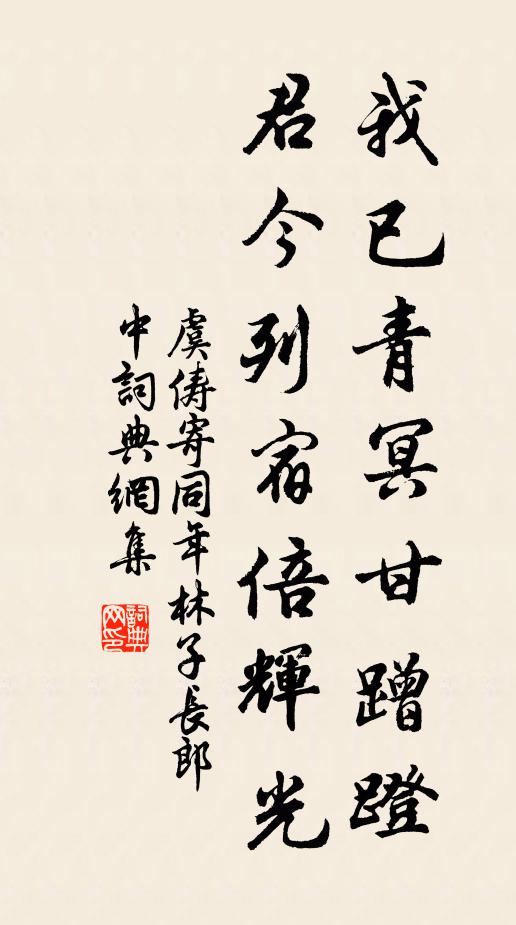 我已青冥甘蹭蹬
君今列宿倍輝光
虞俦寄同年林子長郎
中詞典網集
詞典
网印